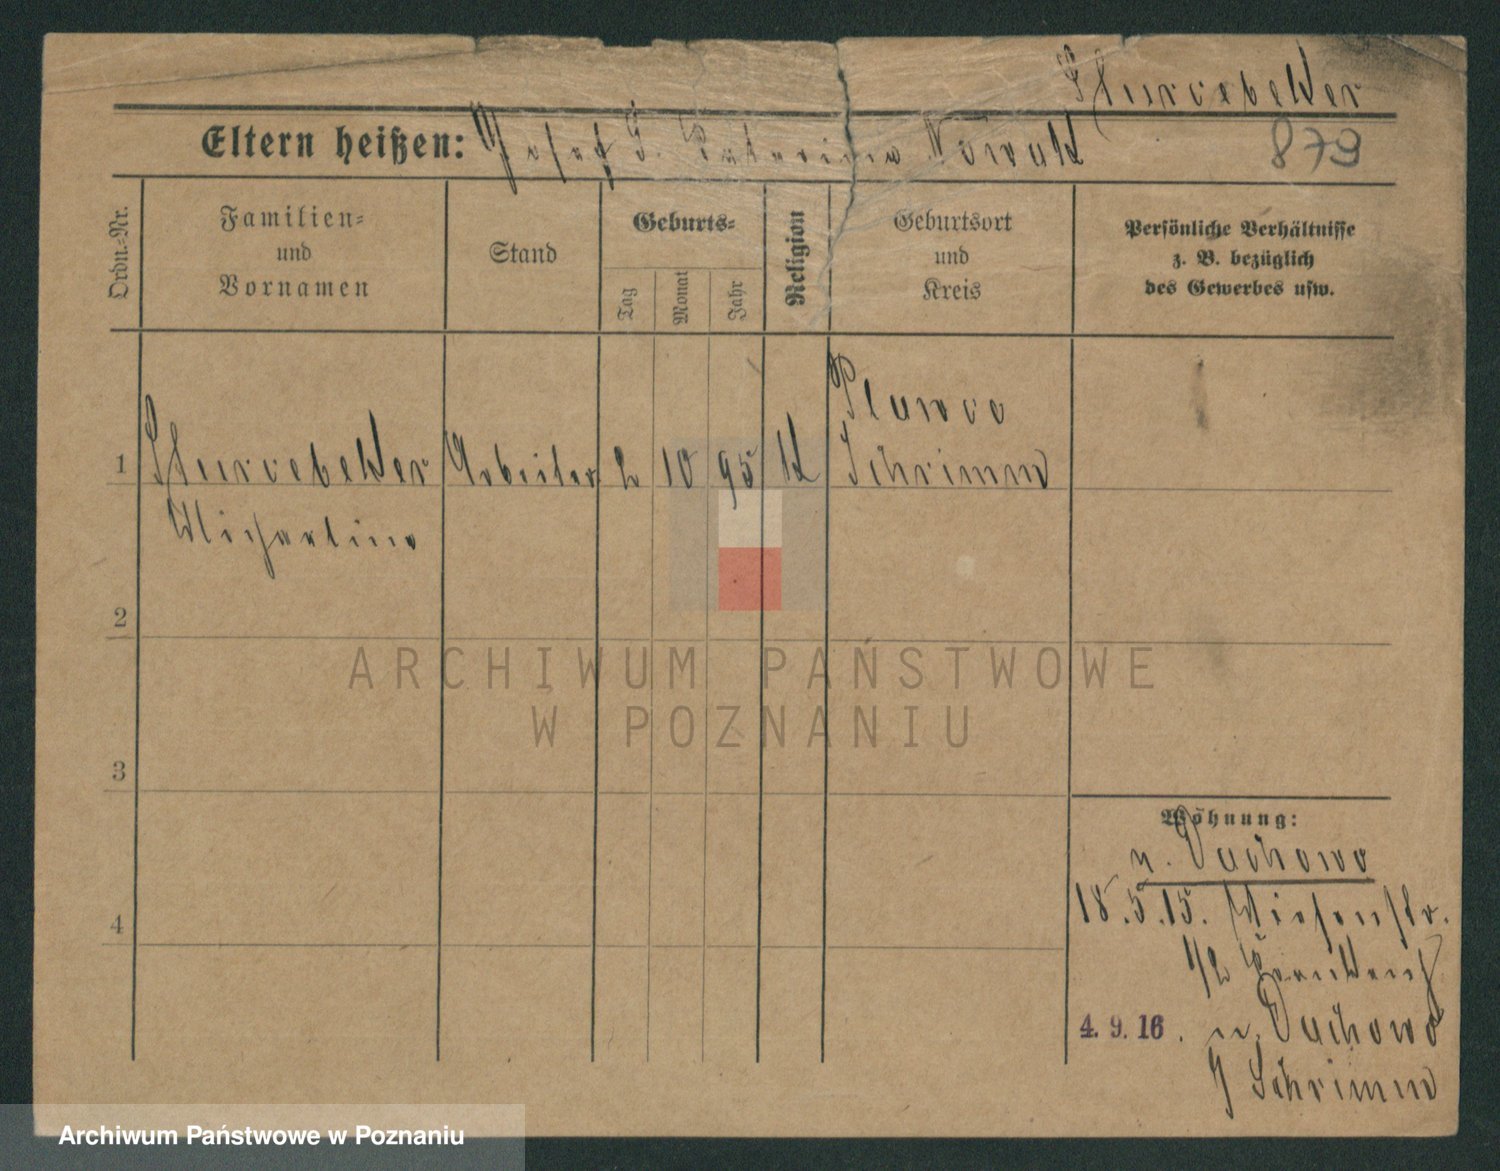 879
Eltern heißen: Josef Nowak
Ordn.=Nr.
Familien=
und
Vornamen
Stand
Geburts=
Tag
Monat
Jahr
Religion
Geburtsort
und
Kreis
Persönliche Verhältnisse
z. B. bezüglich
des Gewerbes usw.
1
Arbeiter
2
10
95
K
Schrimm
2
3
4
Wohnung:
n. Dachowo
18.5.15. Wiesenstr.
1/2
4. 9. 16. n. Dachowo
Schrimm
ARCHIWUM PAŃSTWOWE
W POZNANIU
Archiwum Państwowe w Poznaniu